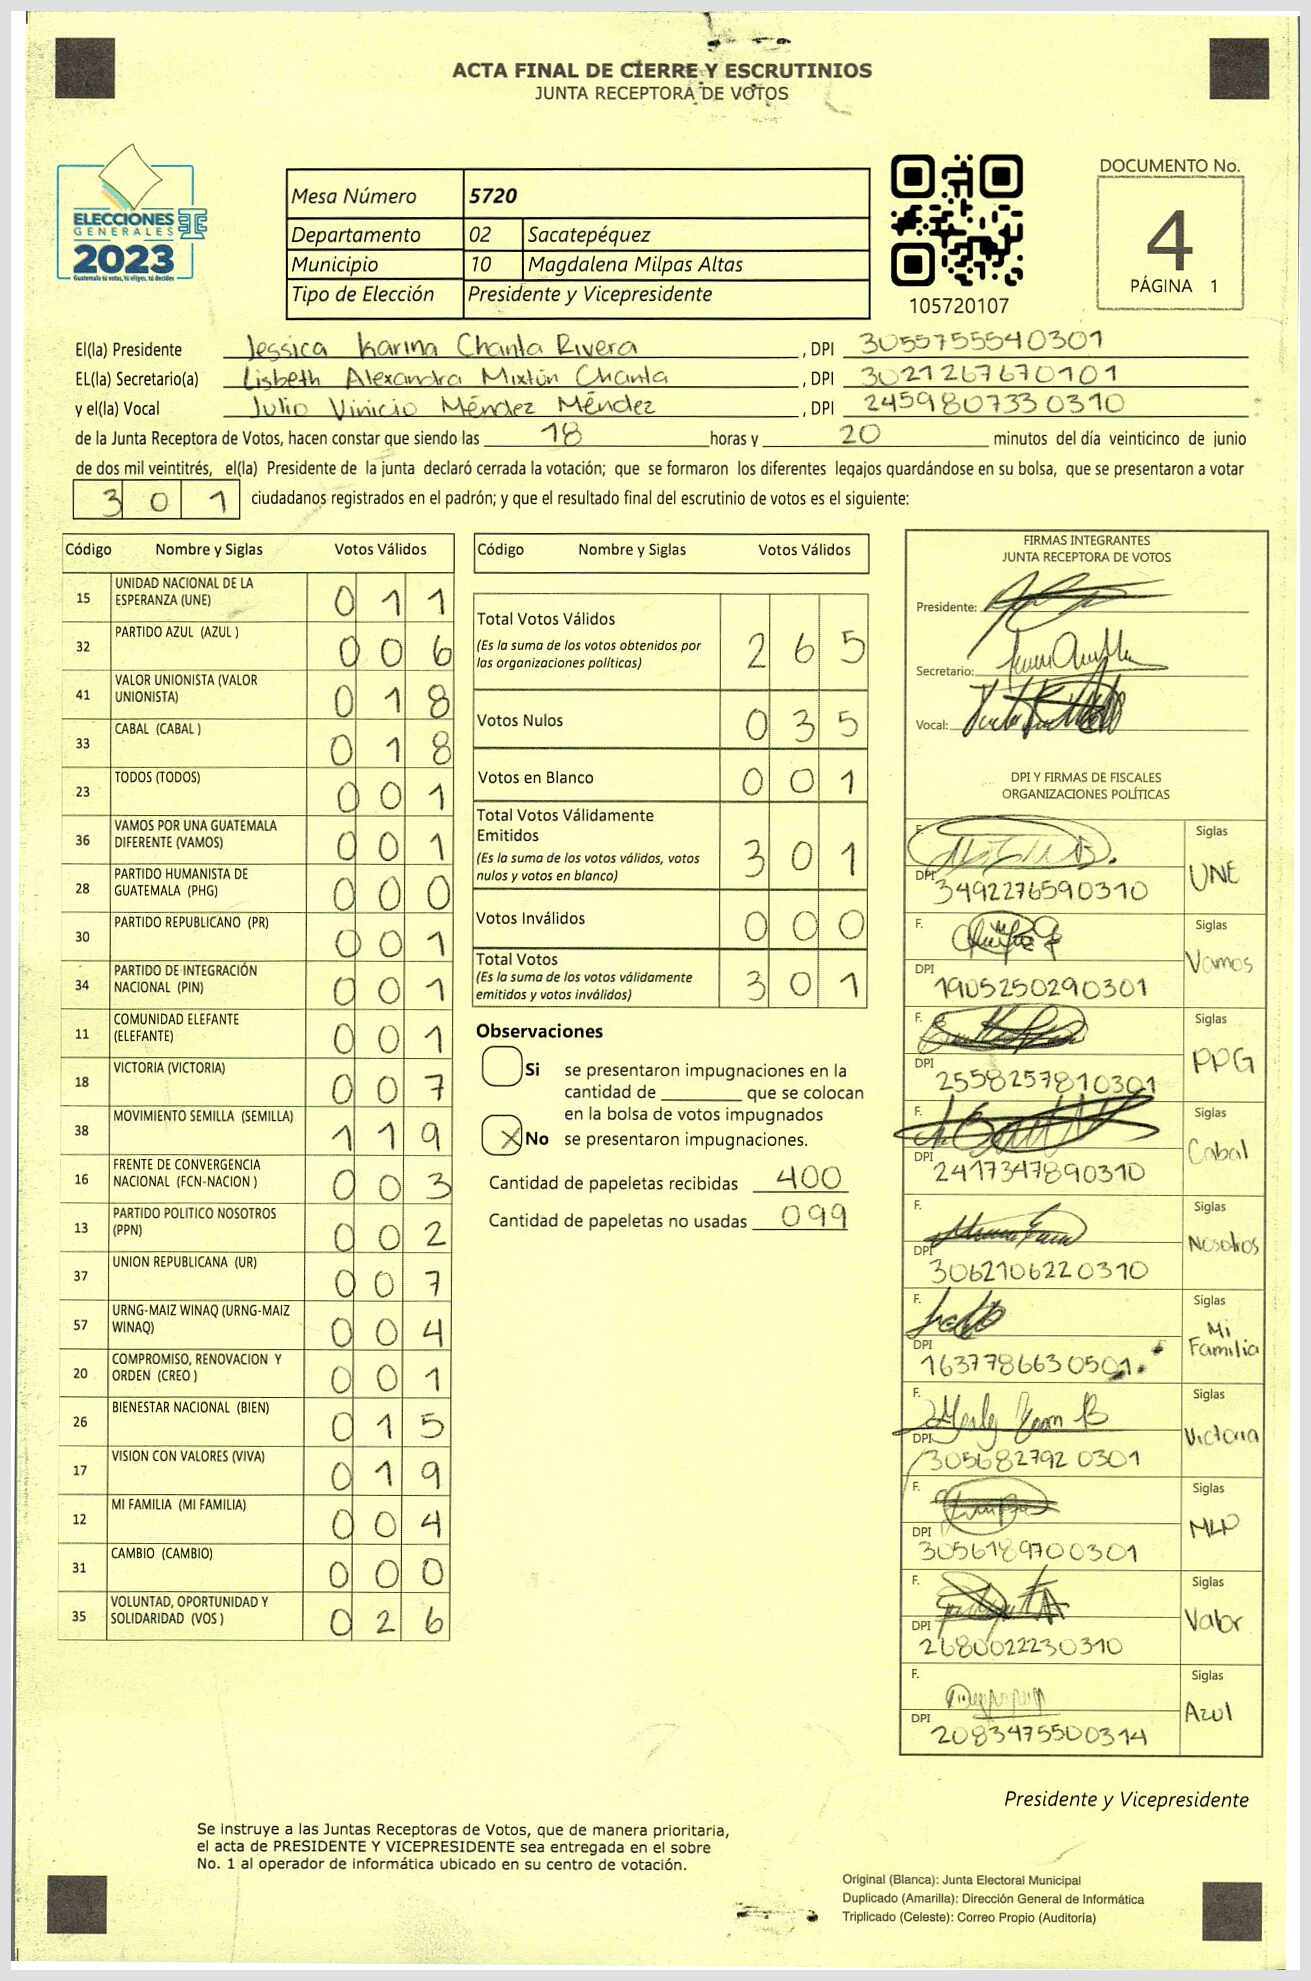 ACTA FINAL DE CIERRE Y ESCRUTINIOS
JUNTA RECEPTORA DE VOTOS
ELECCIONES
GENERALES
2023
Guatemala tú votas, tú eliges, tú decides
Mesa Número 5720
Departamento 02 Sacatepéquez
Municipio 10 Magdalena Milpas Altas
Tipo de Elección Presidente y Vicepresidente
105720107
DOCUMENTO No.
4
PÁGINA 1
El(la) Presidente Jessica Karina Chanta Rivera , DPI 3055755540301
EL(la) Secretario(a) Lisbeth Alexandra Mixtún Chanta , DPI 3021267670101
y el(la) Vocal Julio Vinicio Méndez Méndez , DPI 2459807330310
de la Junta Receptora de Votos, hacen constar que siendo las 18 horas y 20 minutos del día veinticinco de junio
de dos mil veintitrés, el(la) Presidente de la junta declaró cerrada la votación; que se formaron los diferentes legajos guardándose en su bolsa, que se presentaron a votar
301 ciudadanos registrados en el padrón; y que el resultado final del escrutinio de votos es el siguiente:
Código Nombre y Siglas Votos Válidos
15 UNIDAD NACIONAL DE LA ESPERANZA (UNE) 011
32 PARTIDO AZUL (AZUL ) 006
41 VALOR UNIONISTA (VALOR UNIONISTA) 018
33 CABAL (CABAL ) 018
23 TODOS (TODOS) 001
36 VAMOS POR UNA GUATEMALA DIFERENTE (VAMOS) 001
28 PARTIDO HUMANISTA DE GUATEMALA (PHG) 000
30 PARTIDO REPUBLICANO (PR) 001
34 PARTIDO DE INTEGRACIÓN NACIONAL (PIN) 001
11 COMUNIDAD ELEFANTE (ELEFANTE) 001
18 VICTORIA (VICTORIA) 007
38 MOVIMIENTO SEMILLA (SEMILLA) 119
16 FRENTE DE CONVERGENCIA NACIONAL (FCN-NACION ) 003
13 PARTIDO POLITICO NOSOTROS (PPN) 002
37 UNION REPUBLICANA (UR) 007
57 URNG-MAIZ WINAQ (URNG-MAIZ WINAQ) 004
20 COMPROMISO, RENOVACION Y ORDEN (CREO ) 001
26 BIENESTAR NACIONAL (BIEN) 015
17 VISION CON VALORES (VIVA) 019
12 MI FAMILIA (MI FAMILIA) 004
31 CAMBIO (CAMBIO) 000
35 VOLUNTAD, OPORTUNIDAD Y SOLIDARIDAD (VOS ) 026
Código Nombre y Siglas Votos Válidos
Total Votos Válidos 265
(Es la suma de los votos obtenidos por
las organizaciones políticas)
Votos Nulos 035
Votos en Blanco 001
Total Votos Válidamente
Emitidos 301
(Es la suma de los votos válidos, votos
nulos y votos en blanco)
Votos Inválidos 000
Total Votos 301
(Es la suma de los votos válidamente
emitidos y votos inválidos)
Observaciones
Si se presentaron impugnaciones en la
cantidad de ________ que se colocan
en la bolsa de votos impugnados
X No se presentaron impugnaciones.
Cantidad de papeletas recibidas 400
Cantidad de papeletas no usadas 099
FIRMAS INTEGRANTES
JUNTA RECEPTORA DE VOTOS
Presidente:
Secretario:
Vocal:
DPI Y FIRMAS DE FISCALES
ORGANIZACIONES POLÍTICAS
F. Siglas UNE
DPI 3492276590310
F. Siglas Vamos
DPI 1905250290301
F. Siglas PPG
DPI 2558257810301
F. Siglas Cabal
DPI 2417347890310
F. Siglas Nosotros
DPI 3062106220310
F. Siglas Mi Familia
DPI 1637786630501
F. Siglas Victoria
DPI 3056827920301
F. Siglas MLP
DPI 3056189700301
F. Siglas Valor
DPI 2680022230310
F. Siglas Azul
DPI 2083475500314
Presidente y Vicepresidente
Se instruye a las Juntas Receptoras de Votos, que de manera prioritaria,
el acta de PRESIDENTE Y VICEPRESIDENTE sea entregada en el sobre
No. 1 al operador de informática ubicado en su centro de votación.
Original (Blanca): Junta Electoral Municipal
Duplicado (Amarilla): Dirección General de Informática
Triplicado (Celeste): Correo Propio (Auditoría)